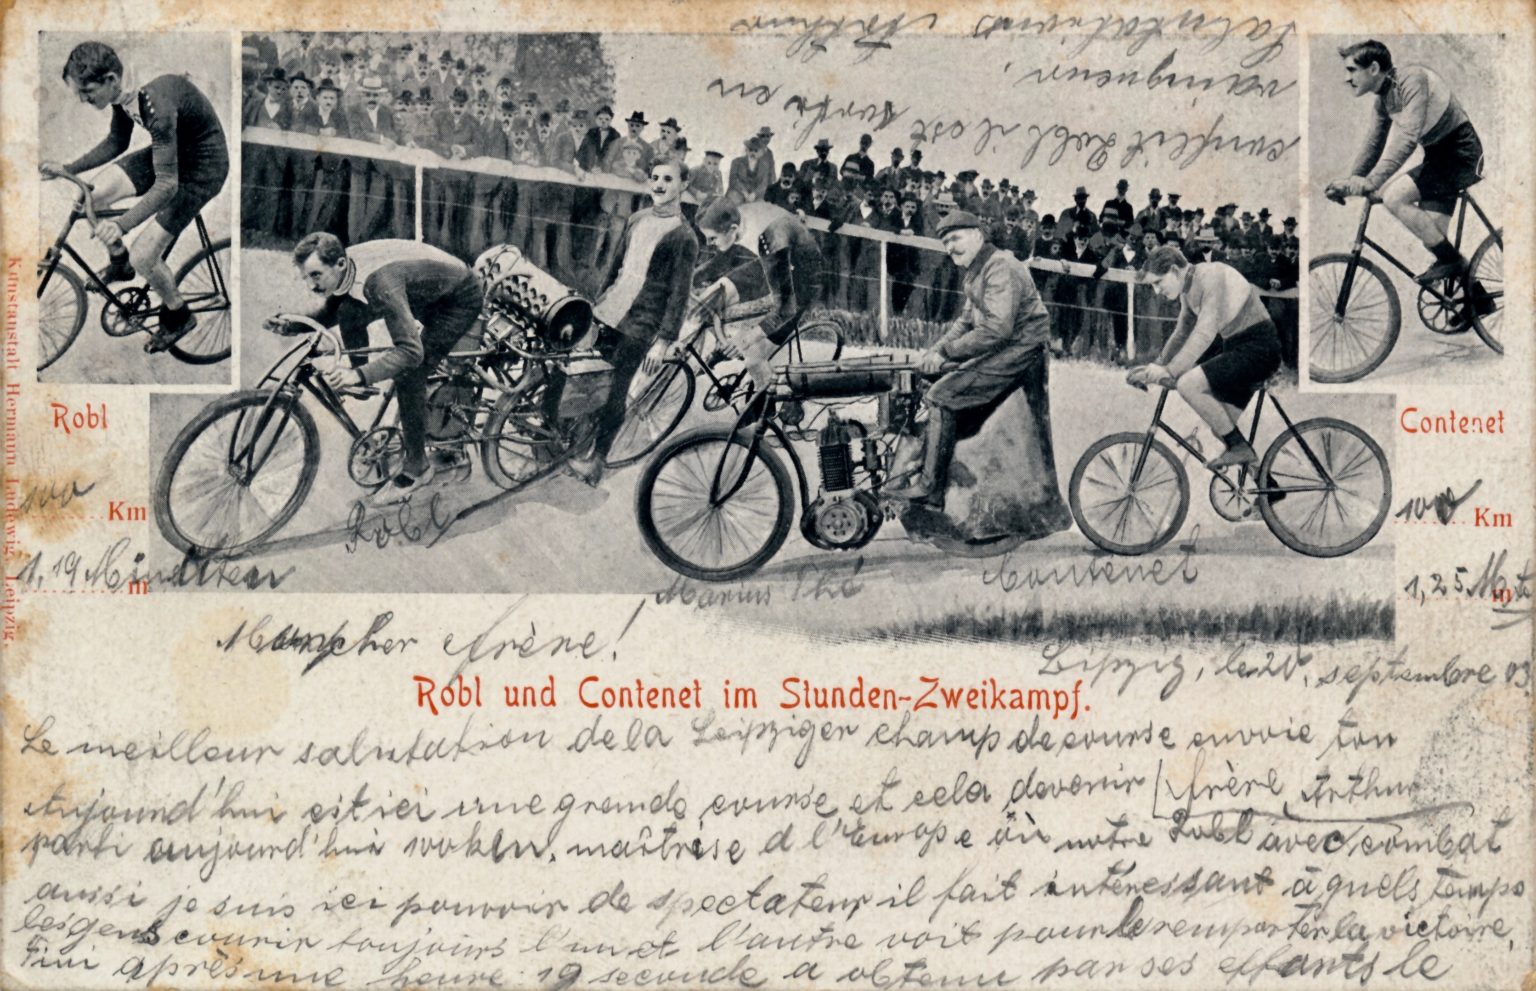 Salutations Arthur
vainqueur,
conflit Robl il est sorti en
Robl
Contenet
100 Km
100 Km
1,19 Minuten m
1,25 m
Robl
Marius Thé
Contenet
Kunstanstalt Hermann Ludewig, Leipzig.
Mon cher frère!
Leipzig, le 20. septembre 03.
Robl und Contenet im Stunden-Zweikampf.
Le meilleur salutation de la Leipziger champ de course envoie ton
frère Arthur
Aujourd'hui est ici une grande course et cela devenir
parti aujourd'hui maîtrise d l'Europe où notre Robl avec combat
aussi je suis ici pouvoir de spectateur il fait intéressant à quels temps
les gens courir toujours l'un et l'autre voit pour le remporter la victoire,
Fini après une heure 19 seconde a obtenu par ses effants le